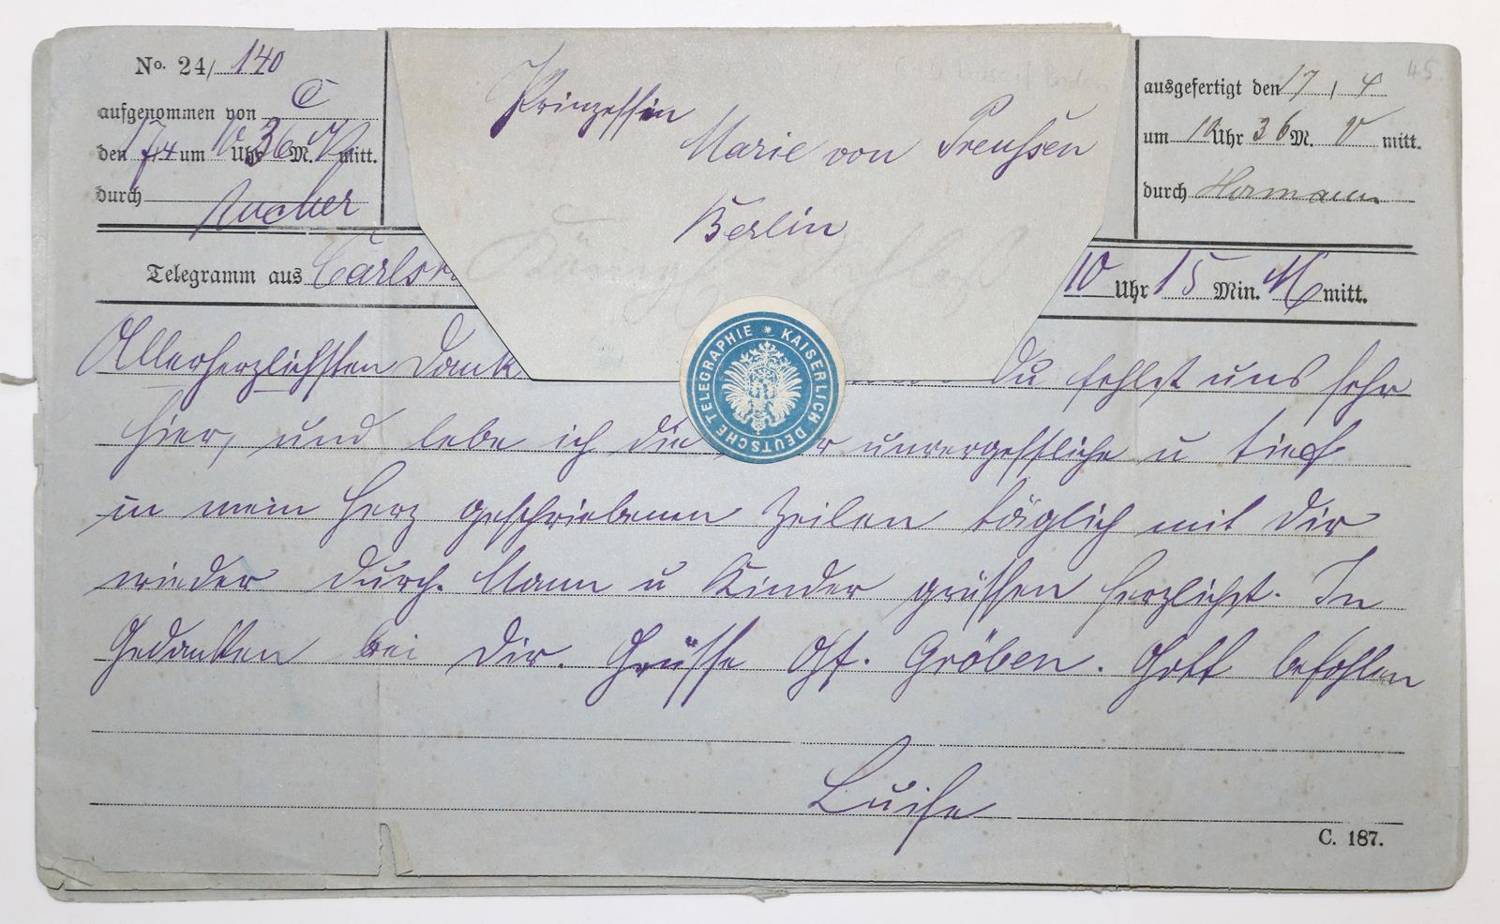 No. 24/ 140
aufgenommen von C
den 17/4 um 10 Uhr 36 M. V mitt.
durch
Prinzessin
Marie von Preussen
Berlin
Königl. Schloß
ausgefertigt den 17 / 4
um 10 Uhr 36 M. V mitt.
durch Hormann
45.
Telegramm aus Carlsr
10 Uhr 15 Min. M mitt.
Allerherzlichsten Dank Du fehlst uns sehr
hier, und lebe ich die r unvergessliche u tief
in mein Herz geschriebenen Zeilen täglich mit Dir
wieder durch. Mann u Kinder grüssen herzlichst. In
Gedanken bei Dir. Grüsse Gf. Gröben. Gott befohlen
Luise
KAISERLICH DEUTSCHE TELEGRAPHIE *
C. 187.